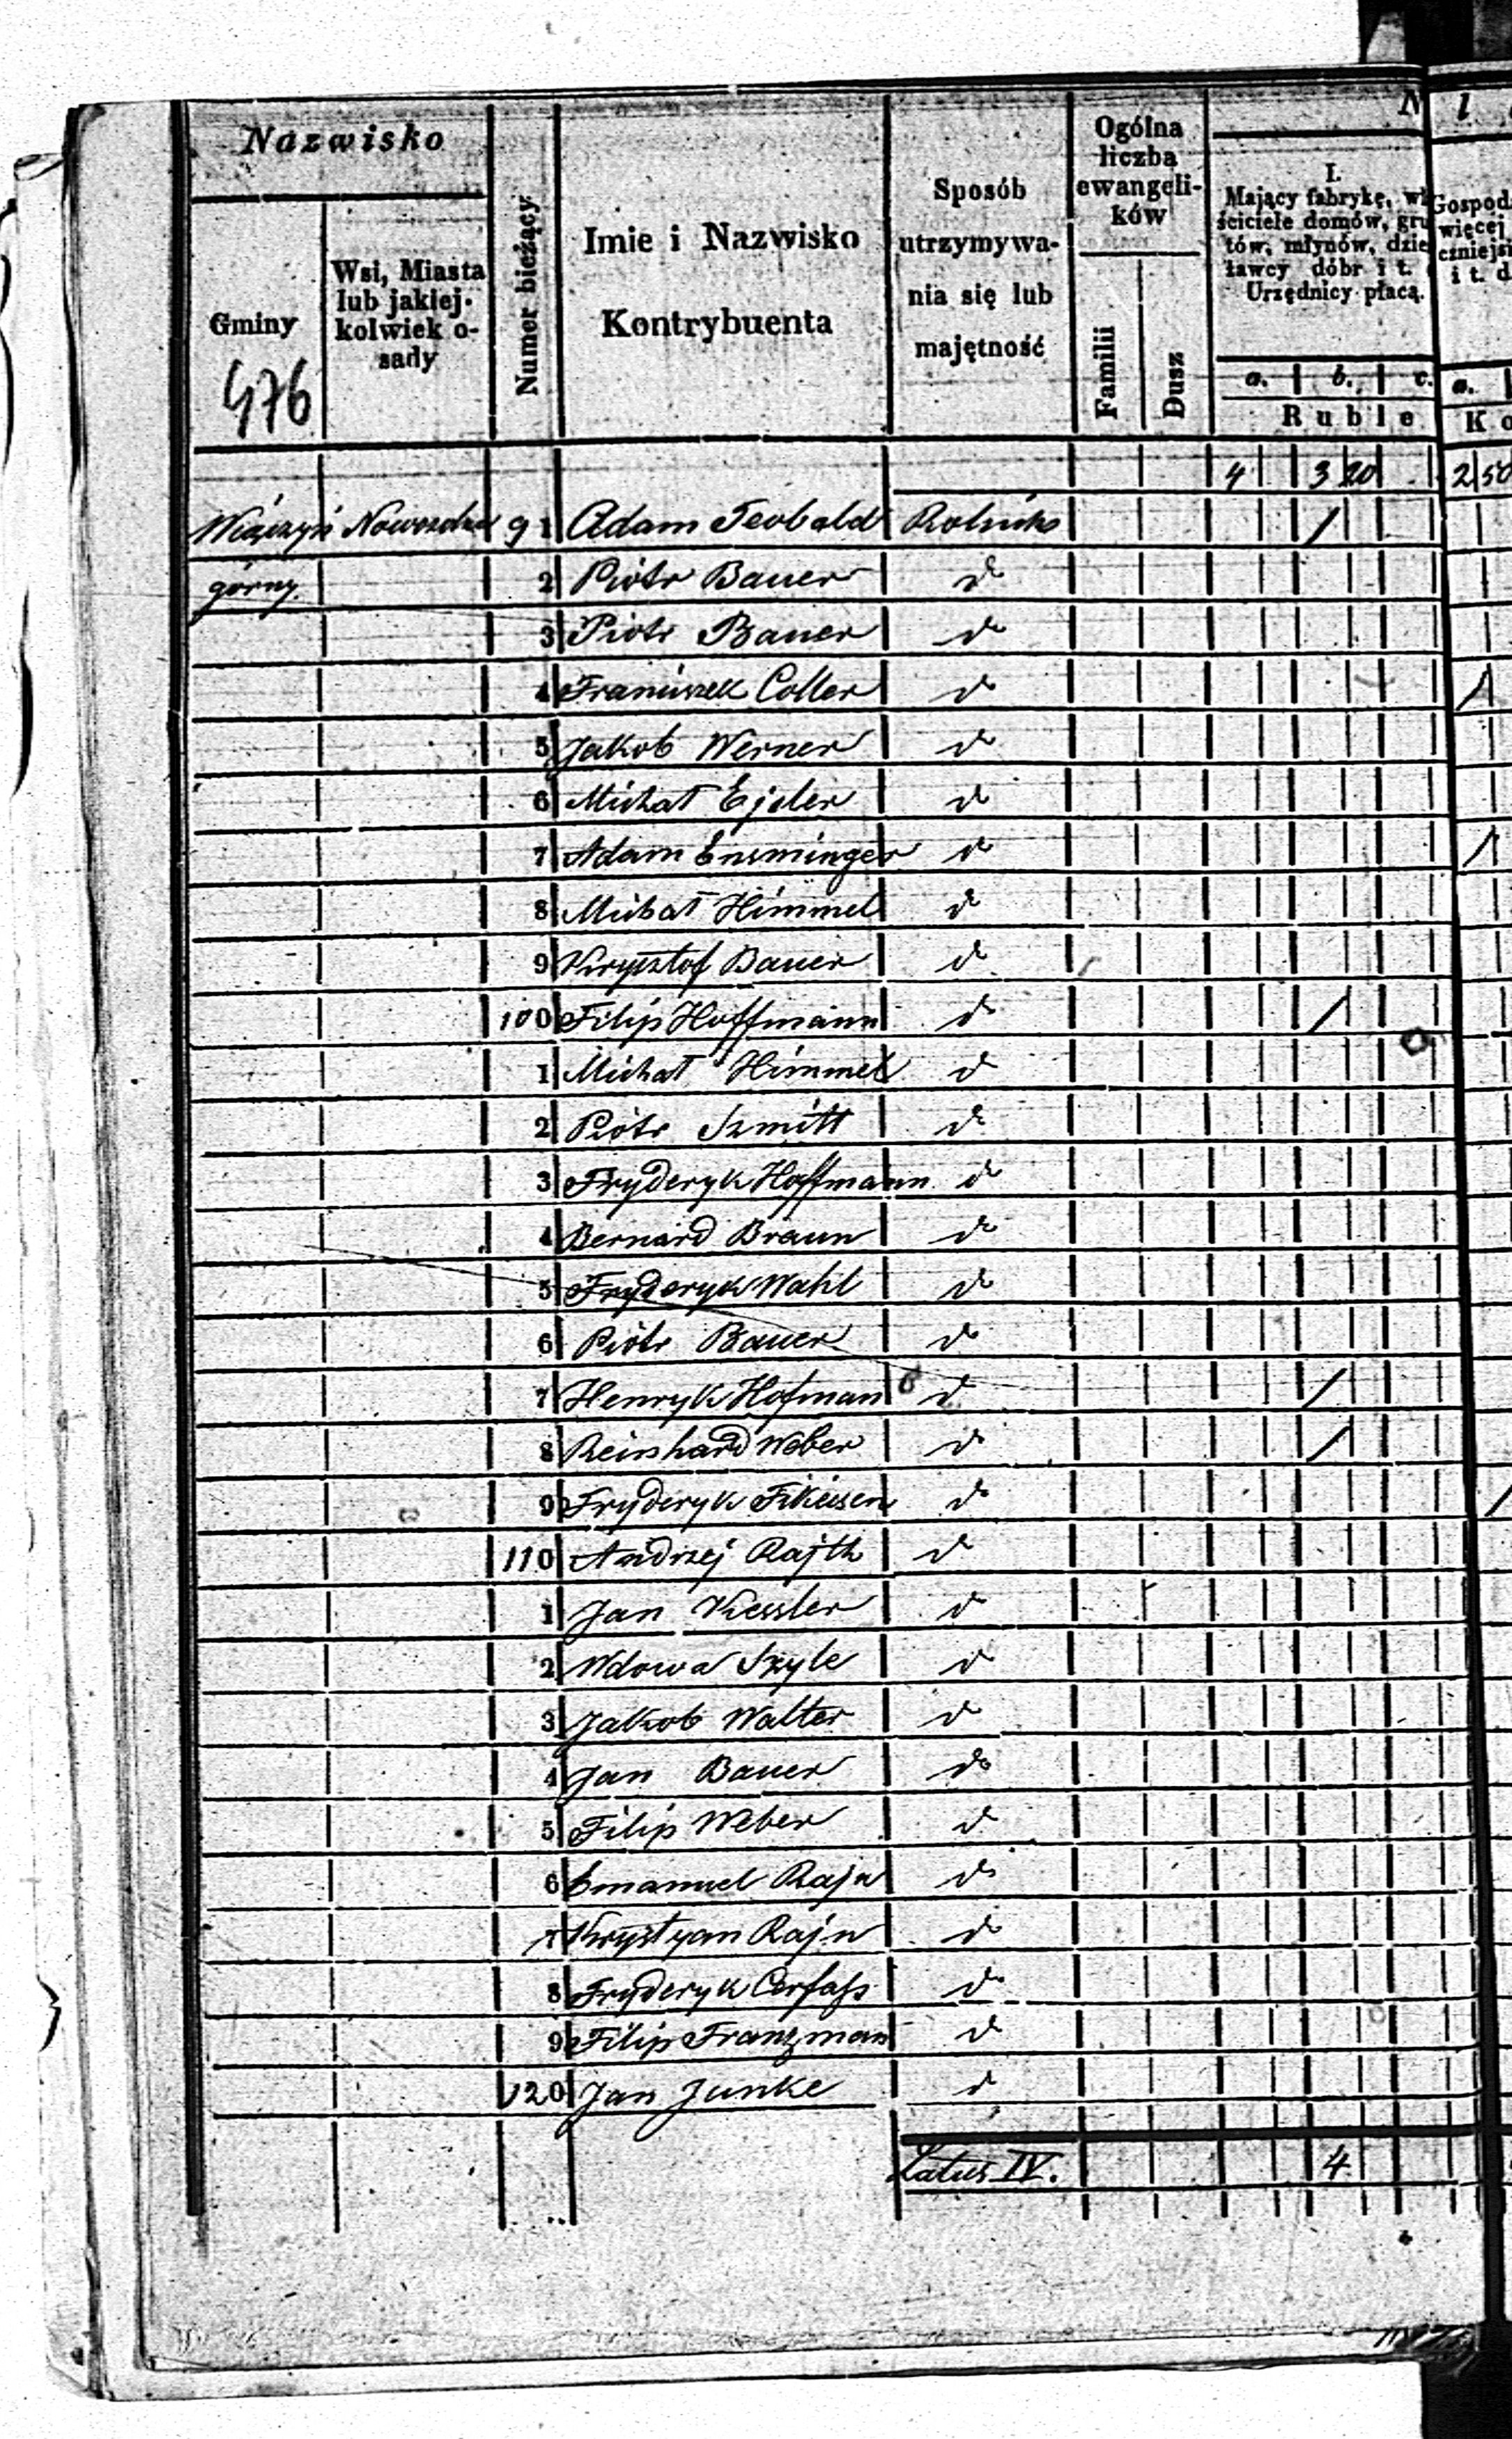 Nazwisko
Gminy
476
Wsi, Miasta
lub jakiej-
kolwiek o-
sady
Numer bieżący
Imie i Nazwisko
Kontrybuenta
Sposób
utrzymywa-
nia się lub
majętność
Ogólna
liczba
ewangeli-
ków
Familii
Dusz
I.
Mający fabrykę,
ściciele domów,
tów, młynów,
ławcy dóbr i t.
Urzędnicy płacą.
a. b. c. a.
Ruble
4 3 20 2 50
Wiączyń 91 Adam Teobald Rolnik /
górny. 2 Piotr Bauer d
3 Piotr Bauer d
4 Franciszek Coller d /
5 Jakob Werner d
6 Michał Ejsler d
7 Adam Ensminger d /
8 Michał Himmel d
9 Krysztof Bauer d
100 Filip Hoffmann d /
1 Michał Himmel d
2 Piotr Szmitt d
3 Fryderyk Hoffmann d
4 Bernard Braun d
5 Fryderyk Wahl d
6 Piotr Bauer d
7 Henryk Hofman d /
8 Reinhard Weber d /
9 Fryderyk Fikeisen d /
110 Andrzej Rajth d
1 Jan Kessler d
2 Wdowa Szyle d
3 Jakob Walter d
4 Jan Bauer do
5 Filip Weber d
6 Emanuel Rajn d
7 Krystyan Rajn d
8 Fryderyk Cerfass d
9 Filip Franzman d
120 Jan Junke d
Latus IV. 4